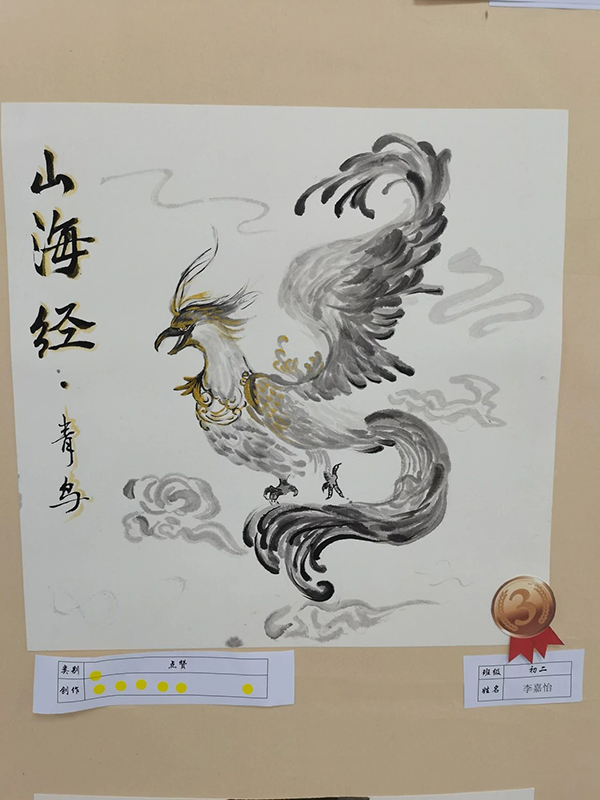 山海经：
青鸟
类别 点赞
创作
3
班级 初二
姓名 李嘉怡